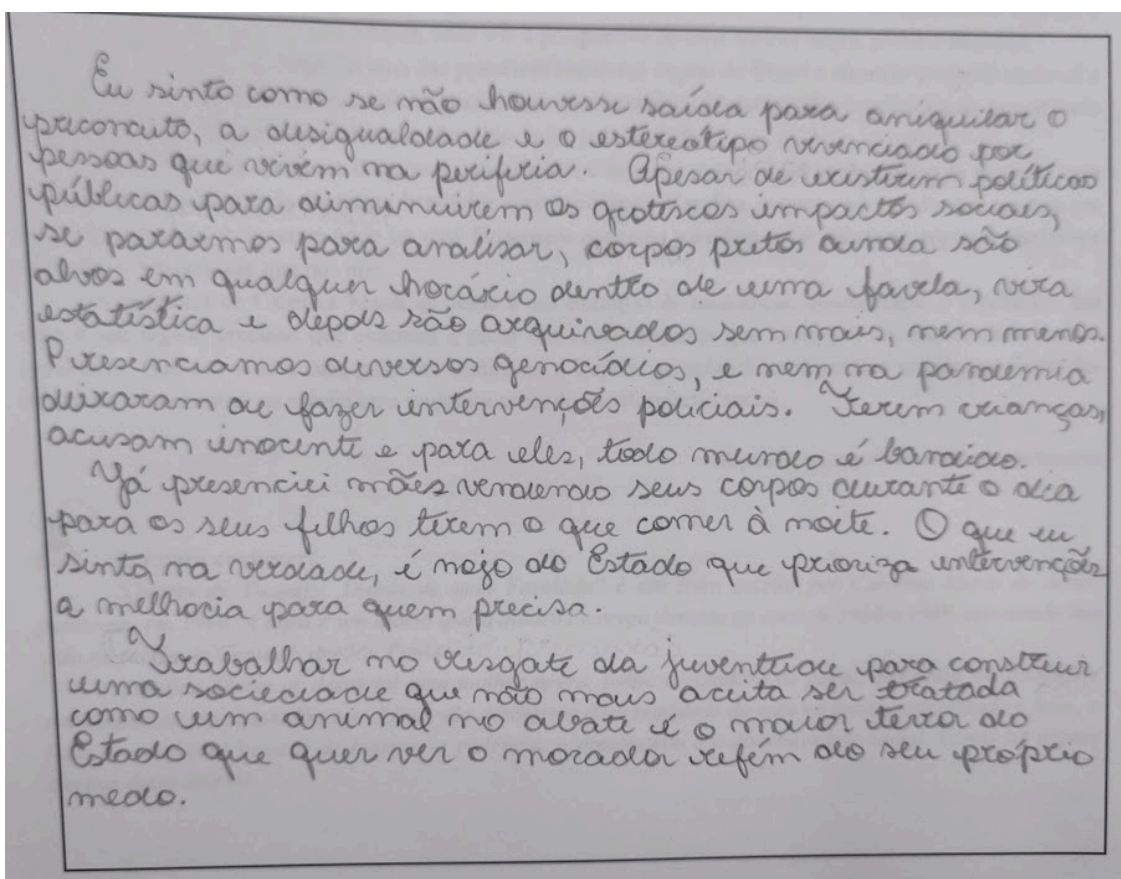 Eu sinto como se não houvesse saída para aniquilar o
preconceito, a desigualdade e o estereótipo vivenciado por
pessoas que vivem na periferia. Apesar de existirem políticas
públicas para diminuirem os grotescos impactos sociais,
se pararmos para analisar, corpos pretos ainda são
alvos em qualquer horário dentro de uma favela, vira
estatística e depois são arquivados sem mais, nem menos.
Presenciamos diversos genocídios, e nem na pandemia
deixaram de fazer intervenções policiais. Ferem crianças,
acusam inocente e para eles, todo mundo é bandido.
Já presenciei mães vendendo seus corpos durante o dia
para os seus filhos terem o que comer à noite. O que eu
sinto, na verdade, é nojo do Estado que prioriza intervenções
a melhoria para quem precisa.
Trabalhar no resgate da juventude para construir
uma sociedade que não mais aceita ser tratada
como um animal no abate é o maior terror do
Estado que quer ver o morador refém do seu próprio
medo.